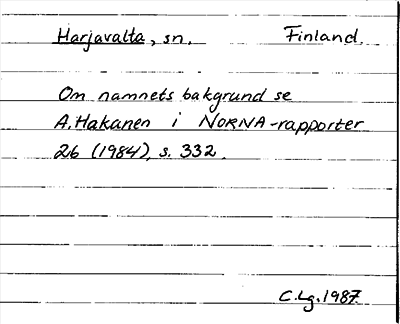 Harjavalta, sn. Finland.
Om namnets bakgrund se
A. Hakanen i NORNA-rapporter
26 (1984), s. 332.
C.Lg. 1987.